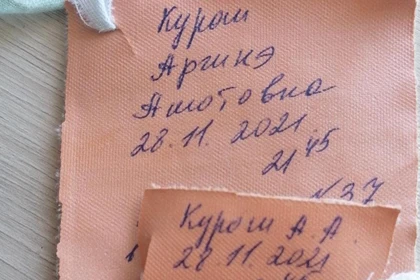 Курош
Аргинэ
Ашотовна
28.11.2021
21 45
N 37
Курош А.А
28.11.2021